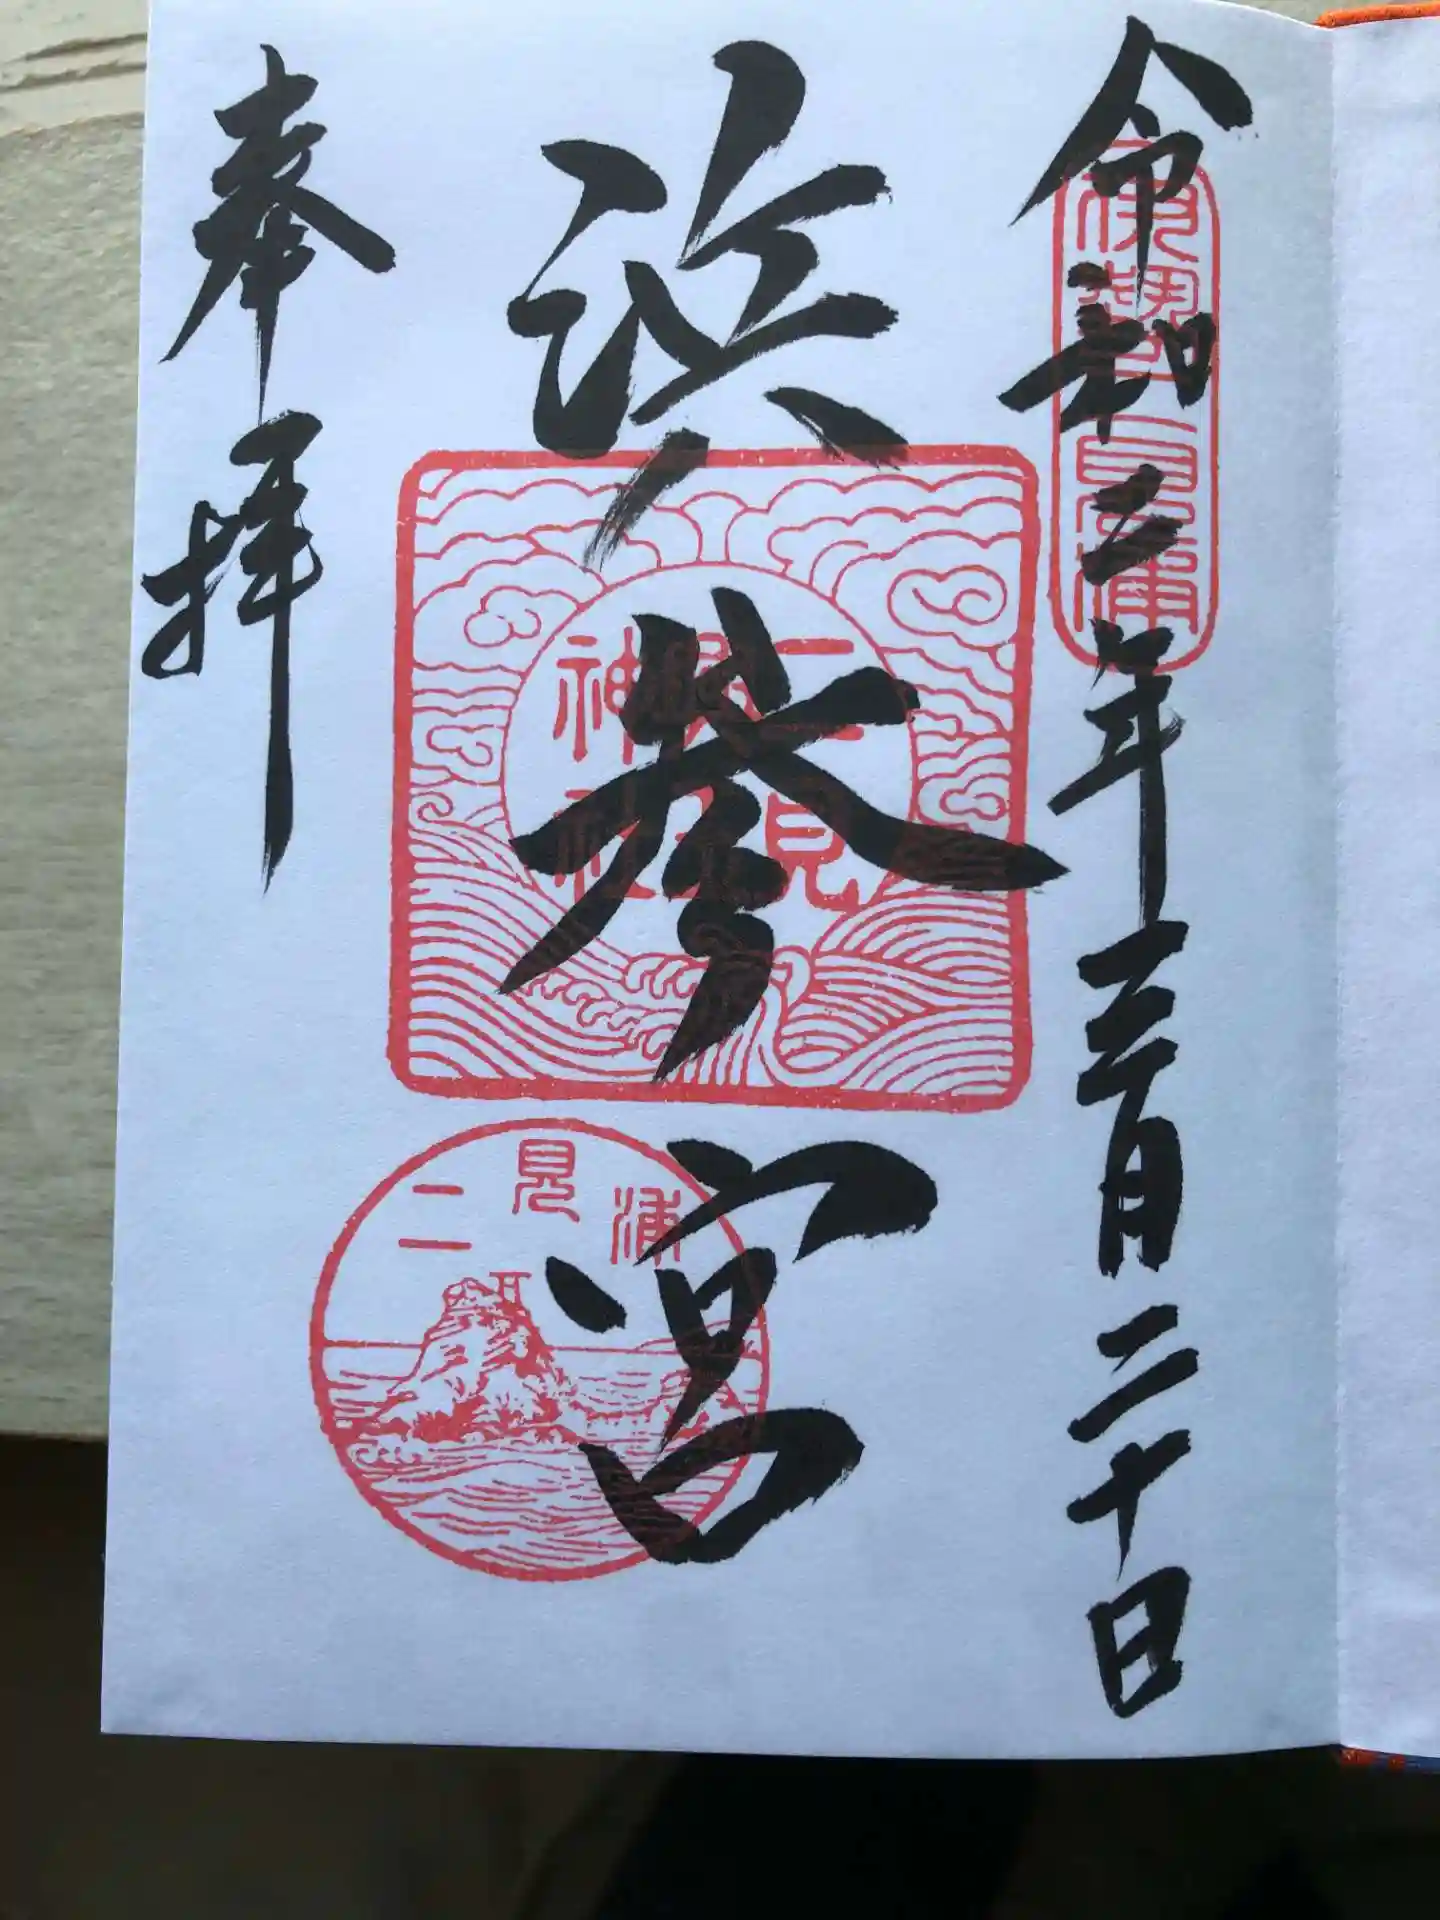 令和二年三月二十日
伊勢二見浦
浜参宮
二見
興玉
神社
二見浦
奉拝